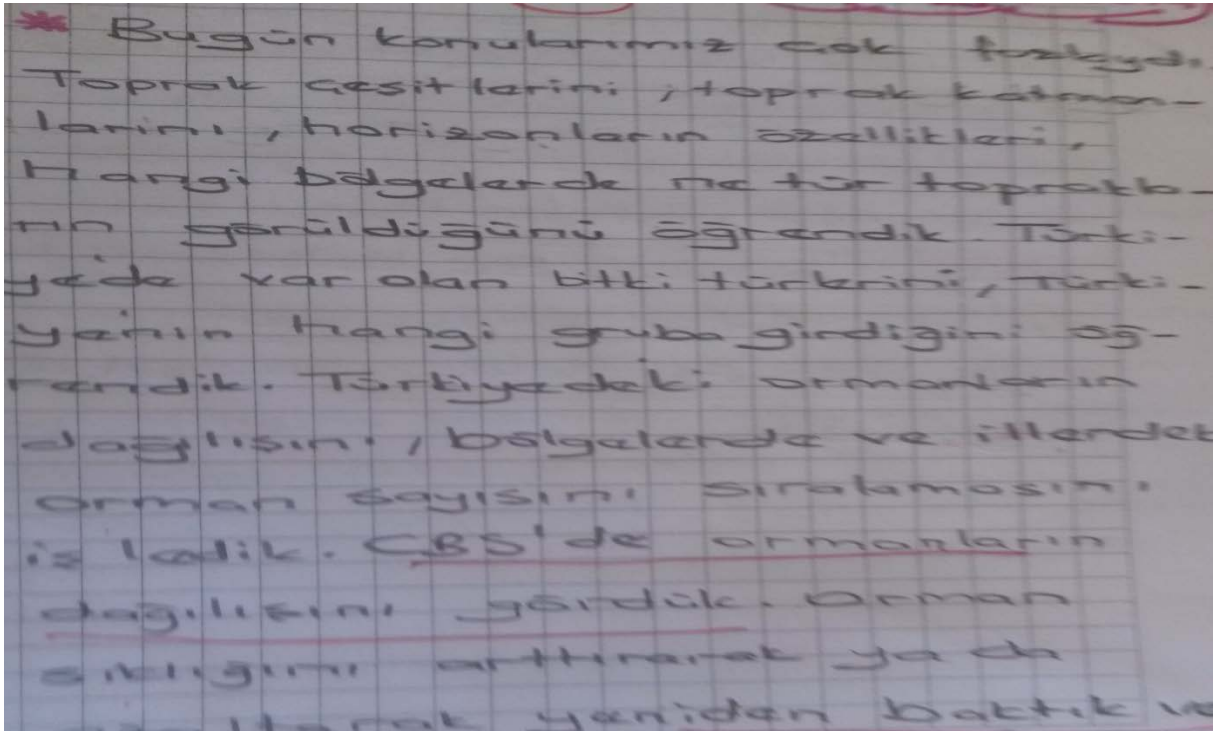 * Bugün konularımız çok fazlaydı.
Toprak çeşitlerini, toprak katman-
larını, horizonların özellikleri,
Hangi bölgelerde ne tür toprakla-
rın görüldüğünü öğrendik. Türki-
ye'de var olan bitki türlerini, Türki-
ye'nin hangi gruba girdiğini öğ-
rendik. Türkiyedeki ormanların
dağılışını, bölgelerde ve illerdeki
orman sayısını sıralamasını
izledik. CBS'de ormanların
dağılışını gördük. Orman
sıklığını arttırarak ya da
yeniden baktık ve